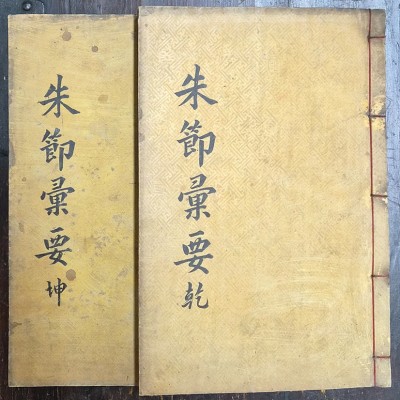 朱節彙要乾
朱節彙要坤